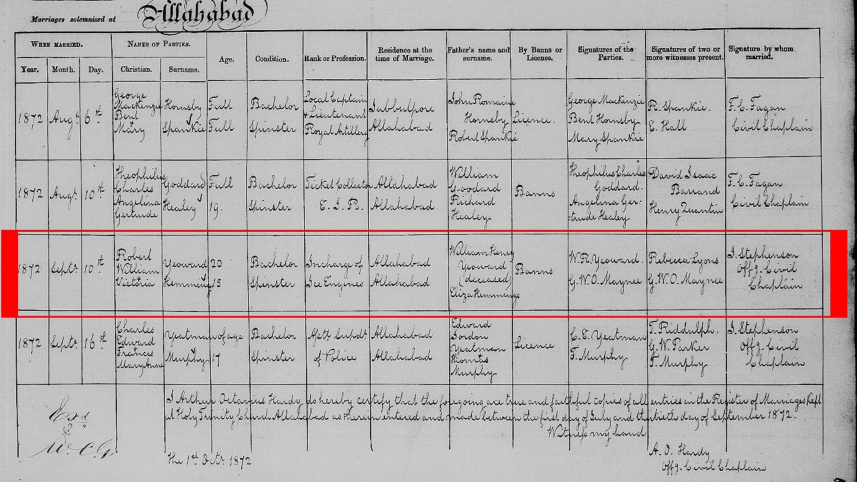 Marriages solemnized at Allahabad
WHEN MARRIED. NAMES OF PARTIES. Age. Condition. Rank or Profession. Residence at the time of Marriage. Father's name and surname. By Banns or License. Signatures of the Parties. Signatures of two or more witnesses present. Signature by whom married.
Year. Month. Day. Christian. Surname.
1872 Augt 6th George Mackenzie Bent Hornsby Full Bachelor Local Captain & Lieutenant Royal Artillery Jubbulpore John Romaine Hornsby Licence George Mackenzie Bent Hornsby R. Spankie. F. C. Fagan Civil Chaplain
Mary Spankie Full Spinster Allahabad Robert Spankie Mary Spankie E. Hall
1872 Augt 10th Theophilus Charles Goddard Full Bachelor Ticket Collector E. I. R. Allahabad William Goddard Banns Theophilus Charles Goddard. David Isaac Barrand F. C. Fagan Civil Chaplain
Angelina Gertrude Healey 19. Spinster Allahabad Richard Healey Angelina Gertrude Healey Henry Quantin
1872 Septr 10th Robert William Yeoward 20 Bachelor Incharge of Ice Engines Allahabad William Henry Yeoward (deceased) Banns W. R. Yeoward. Rebecca Lyons J. Stephenson Offg. Civil Chaplain
Victoria Hemming 15 Spinster Allahabad Eliza Hemmings G. W. O. Maynee G. W. O. Maynee
1872 Septr 16th Charles Edward Yeatman of age Bachelor Asst Supdt of Police Allahabad Edward Gordon Yeatman Licence C. E. Yeatman T. Riddulph. J. Stephenson Offg. Civil Chaplain
Frances MaryAnne Murphy 17 Spinster Allahabad Thomas Murphy F. Murphy G. W. Parker T. Murphy
I Arthur Octavius Hardy do hereby certify that the foregoing are true and faithful copies of all entries in the Register of Marriages kept
at Holy Trinity Church Allahabad as therein entered and made between the first day of July and the thirtieth day of September 1872.
Witness my hand
Exd
A. O. Hardy
Offg. Civil Chaplain
The 1st Octr 1872